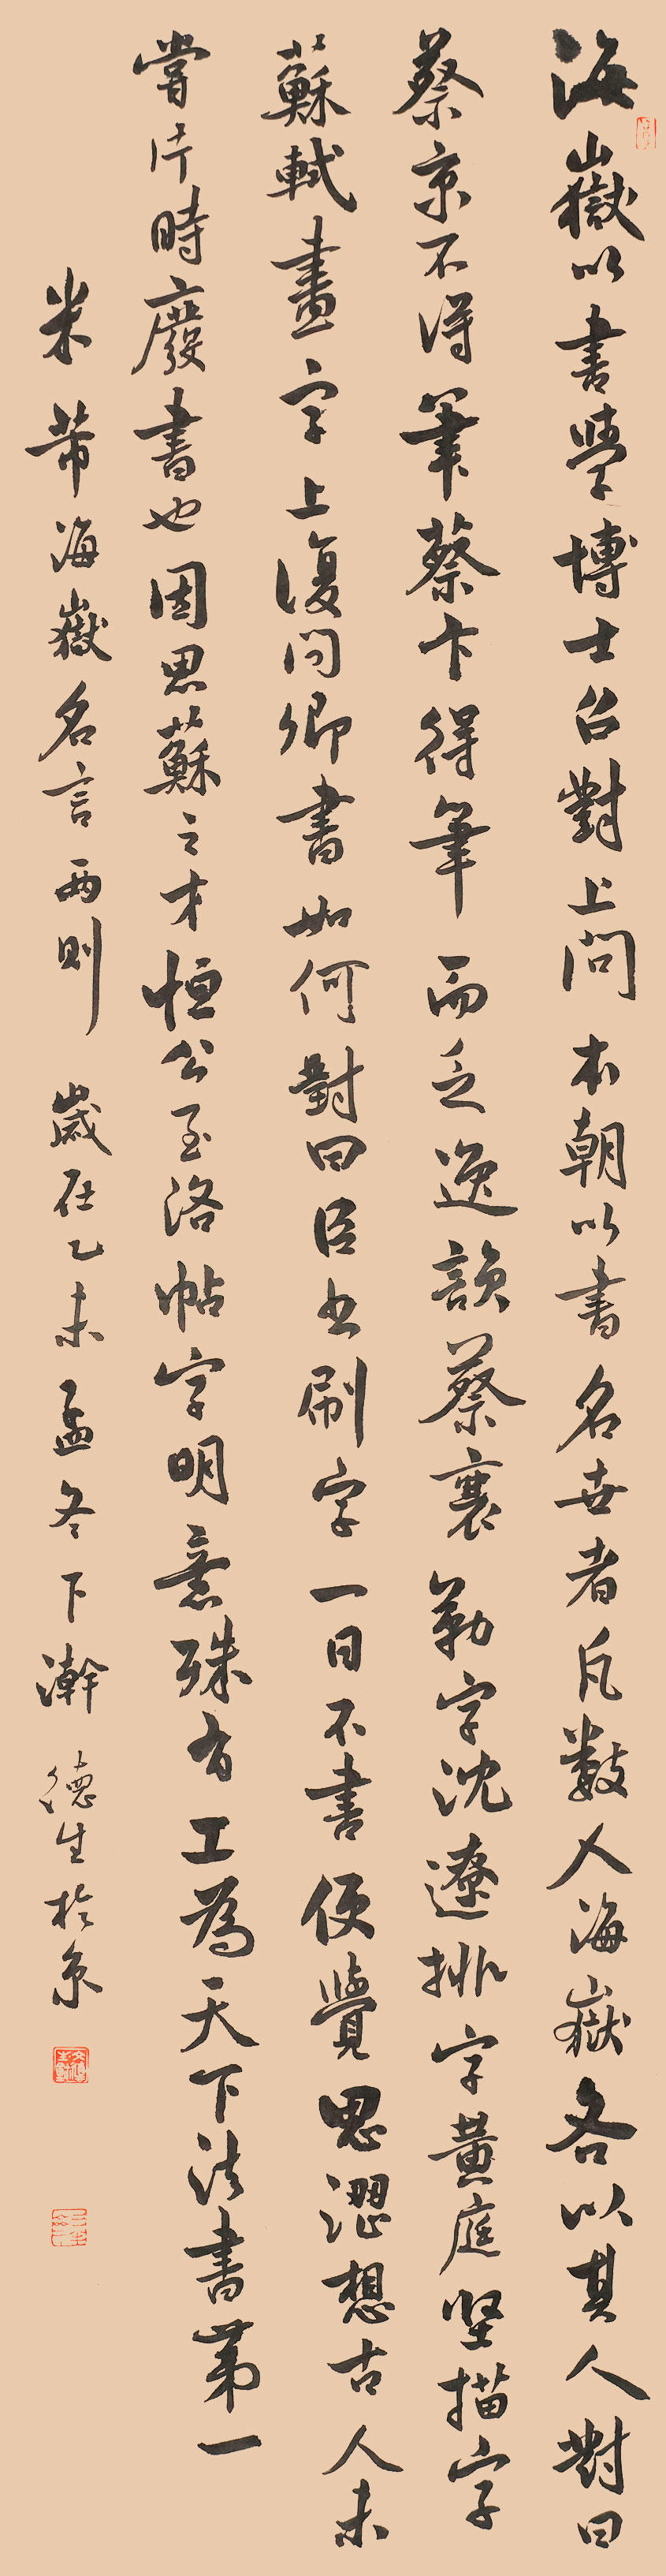 海嶽以書學博士召對上問本朝以書名世者凡數人海嶽各以其人對曰
蔡京不得筆蔡卞得筆而乏逸韻蔡襄勒字沈遼排字黃庭堅描字
蘇軾畫字上復問卿書如何對曰臣書刷字一日不書便覺思澀想古人未
嘗片時廢書也因思蘇之才恒公至洛帖字明意殊有工為天下法書第一
米芾海嶽名言兩則 歲在乙未孟冬下澣 德生於京